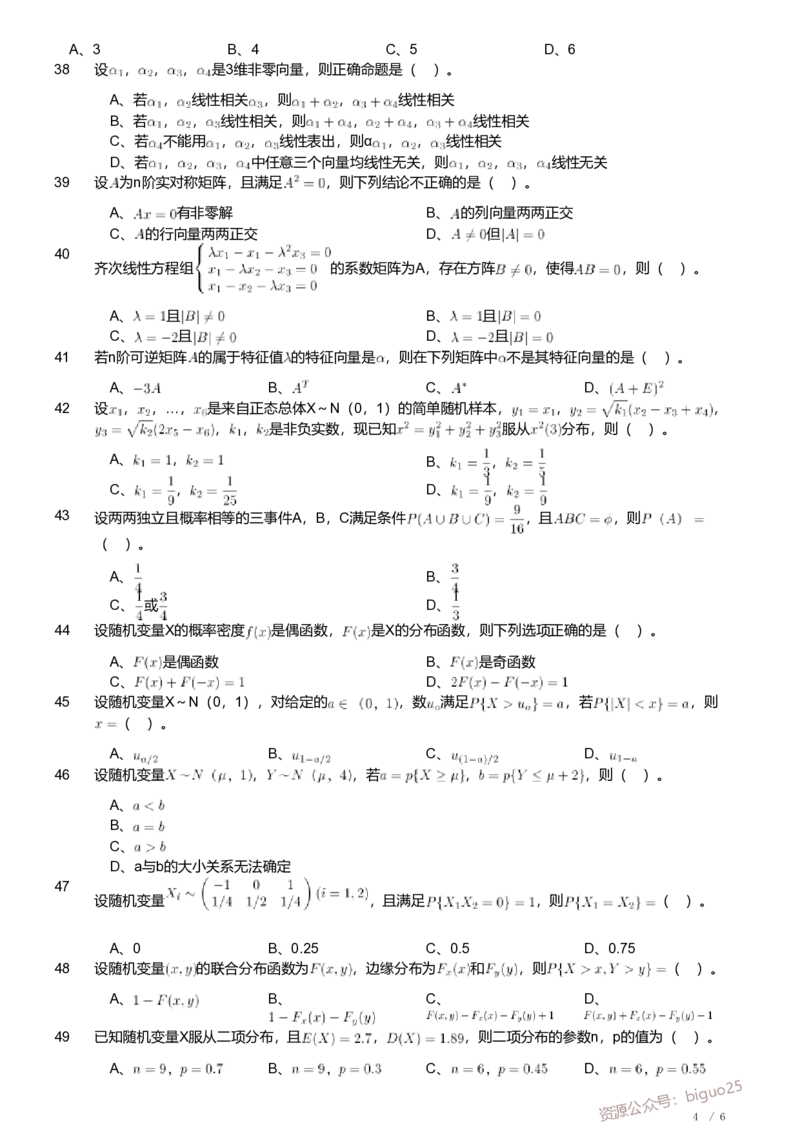 A、3 B、4 C、5 D、6
38 设α₁，α₂，α₃，α₄是3维非零向量，则正确命题是（ ）。
A、若α₁，α₂线性相关α₃，则α₁ + α₂，α₃ + α₄线性相关
B、若α₁，α₂，α₃线性相关，则α₁ + α₄，α₂ + α₄，α₃ + α₄线性相关
C、若α₄不能用α₁，α₂，α₃线性表出，则αα₁，α₂，α₃线性相关
D、若α₁，α₂，α₃，α₄中任意三个向量均线性无关，则α₁，α₂，α₃，α₄线性无关
39 设A为n阶实对称矩阵，且满足A² = 0，则下列结论不正确的是（ ）。
A、Ax = 0有非零解 B、A的列向量两两正交
C、A的行向量两两正交 D、A ≠ 0但|A| = 0
40 齐次线性方程组{λx₁ − x₁ − λ²x₃ = 0
x₁ − λx₂ − x₃ = 0 的系数矩阵为A，存在方阵B ≠ 0，使得AB = 0，则（ ）。
x₁ − x₂ − λx₃ = 0
A、λ = 1且|B| ≠ 0 B、λ = 1且|B| = 0
C、λ = −2且|B| ≠ 0 D、λ = −2且|B| = 0
41 若n阶可逆矩阵A的属于特征值λ的特征向量是α，则在下列矩阵中α不是其特征向量的是（ ）。
A、−3A B、Aᵀ C、A* D、(A + E)²
42 设x₁，x₂，…，x₆是来自正态总体X～N（0，1）的简单随机样本，y₁ = x₁，y₂ = √k₁(x₂ − x₃ + x₄)，
y₃ = √k₂(2x₅ − x₆)，k₁，k₂是非负实数，现已知x² = y₁² + y₂² + y₃²服从x²(3)分布，则（ ）。
A、k₁ = 1，k₂ = 1 B、k₁ = 1/3，k₂ = 1/5
C、k₁ = 1/9，k₂ = 1/25 D、k₁ = 1/9，k₂ = 1/9
43 设两两独立且概率相等的三事件A，B，C满足条件P(A ∪ B ∪ C) = 9/16，且ABC = ϕ，则P（A） =
（ ）。
A、1/4 B、3/4
C、1/4或3/4 D、1/3
44 设随机变量X的概率密度f(x)是偶函数，F(x)是X的分布函数，则下列选项正确的是（ ）。
A、F(x)是偶函数 B、F(x)是奇函数
C、F(x) + F(−x) = 1 D、2F(x) − F(−x) = 1
45 设随机变量X～N（0，1），对给定的a ∈（0，1)，数uₐ满足P{X > uₐ} = a，若P{|X| < x} = a，则
x =（ ）。
A、u_{a/2} B、u_{1−a/2} C、u_{(1−a)/2} D、u_{1−a}
46 设随机变量X∼N（μ，1)，Y∼N（μ，4)，若a = p{X ≥ μ}，b = p{Y ≤ μ + 2}，则（ ）。
A、a < b
B、a = b
C、a > b
D、a与b的大小关系无法确定
47 设随机变量Xᵢ ∼ (−1 0 1
1/4 1/2 1/4) (i = 1, 2)，且满足P{X₁X₂ = 0} = 1，则P{X₁ = X₂} =（ ）。
A、0 B、0.25 C、0.5 D、0.75
48 设随机变量(x, y)的联合分布函数为F(x, y)，边缘分布为Fₓ(x)和F_y(y)，则P{X > x, Y > y} =（ ）。
A、1 − F(x, y) B、1 − Fₓ(x) − F_y(y) C、F(x, y) − Fₓ(x) − F_y(y) + 1 D、F(x, y) + Fₓ(x) − F_y(y) − 1
49 已知随机变量X服从二项分布，且E(X) = 2.7，D(X) = 1.89，则二项分布的参数n，p的值为（ ）。
A、n = 9，p = 0.7 B、n = 9，p = 0.3 C、n = 6，p = 0.45 D、n = 6，p = 0.55
资源公众号：biguo25
4 / 6